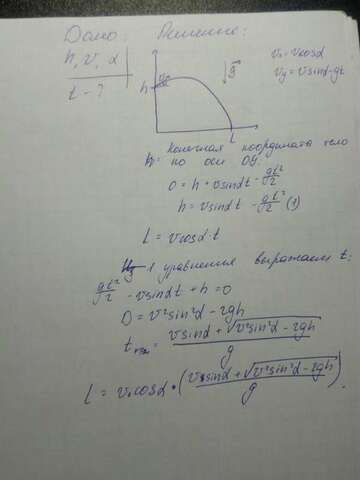 Дано: Решение:
h, v, α
t - ?
h
g
L
vₓ = vcosα
vy = vsinα - gt
Конечная координата тело
по оси ОУ:
0 = h + vsinαt - gt²/2
h = vsinαt - gt²/2 (1)
L = vcosα · t
Из 1 уравнения выражаем t:
gt²/2 - vsinαt + h = 0
D = v²sin²α - 2gh
t = (vsinα + √(v²sin²α - 2gh))/g
L = v₀cosα · (vsinα + √(v²sin²α - 2gh))/g